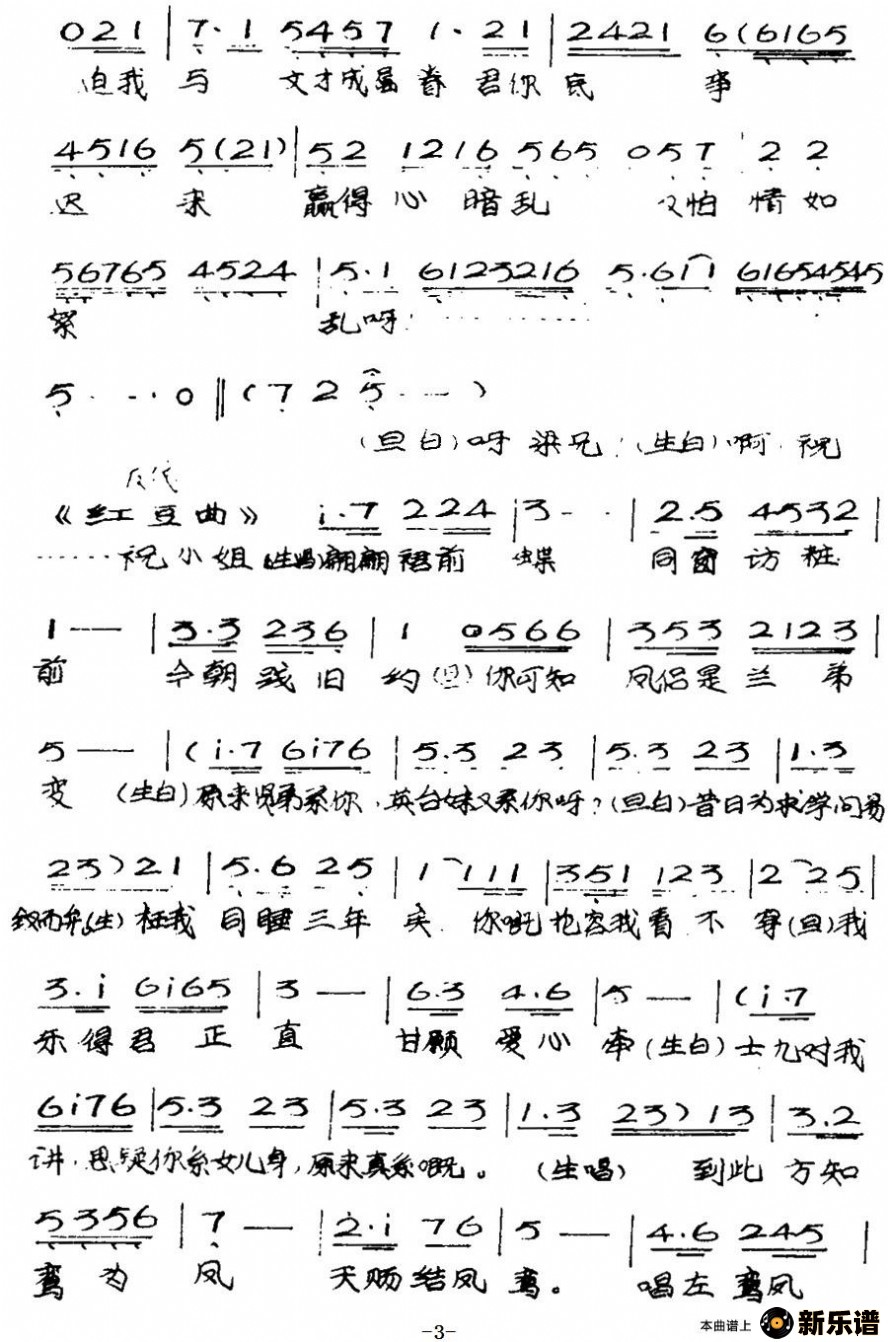 021 | 7·1 5457 1·21 | 2421 6(6165
迫我 与 文才成眷 君你 底 事
4516 5(21) | 52 1216 565 057 22
迟 来 赢得 心 暗乱 又怕 情 如
56765 4524 | 5·1 6123216 5·6i i 61654545
絮 乱呀
5 · · · 0 ‖ ( 7 2 5 · — )
(旦白)呀 梁兄!(生白)啊 祝
《红豆曲》 i·7 224 | 3 - · | 2·5 4532 |
……祝小姐(生唱)翩翩裙前 蝶 同窗访粧
1 — | 3·3 236 | 1 0566 | 353 2123 |
前 今朝践旧 约(旦)你可知 凤侣是兰 弟
5 — | (i·7 6i76 | 5·3 23 | 5·3 23 | 1·3
变 (生白)原来贤弟系你,英台妹又系你呀?(旦白)昔日为求学问易
23)21 | 5·6 25 | 1 111 | 351 123 | 2 25 |
钗而弁(生)枉我 同睡三年 矣 你呒也容我看 不 穿(旦)我
3·i 6i65 | 3 — | 6·3 4·6 | 5 — | (i·7
乐得君 正 直 甘愿 爱心 牵(生白)士九对我
6i76 | 5·3 23 | 5·3 23 | 1·3 23)13 | 3·2
讲,思疑你系女儿身,原来真系嘅。 (生唱) 到此 方知
5356 | 7 — | 2·i 76 | 5 — | 4·6 245 |
鸾为 凤 天赐结凤 鸾。 唱左鸾凤
-3-
本曲谱上 新乐谱